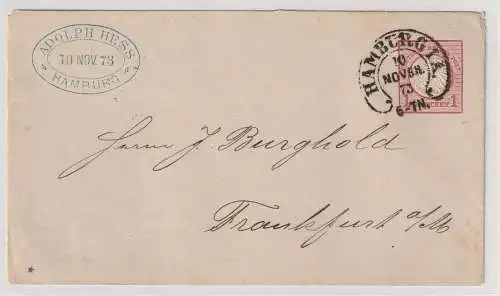 ADOLPH HESS
10 NOV. 73
HAMBURG
HAMBURG I.A.
10
NOVBR.
73
6-7N.
1
Herrn J. Burghold
Frankfurt a/M